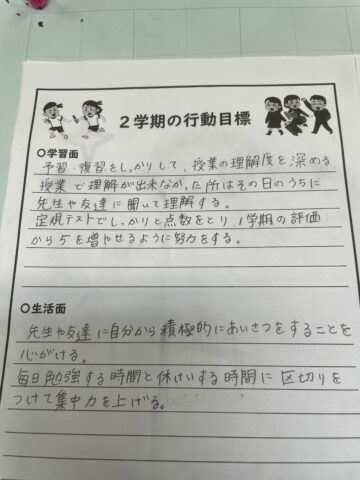 2学期の行動目標
○学習面
予習、復習をしっかりして、授業の理解度を深める
授業で理解が出来なかった所はその日のうちに
先生や友達に聞いて理解する。
定規テストでしっかりと点数をとり、1学期の評価
から5を増やせるように努力をする。
○生活面
先生や友達に自分から積極的にあいさつをすることを
心がける。
毎日勉強する時間と休けいする時間に区切りを
つけて集中力を上げる。